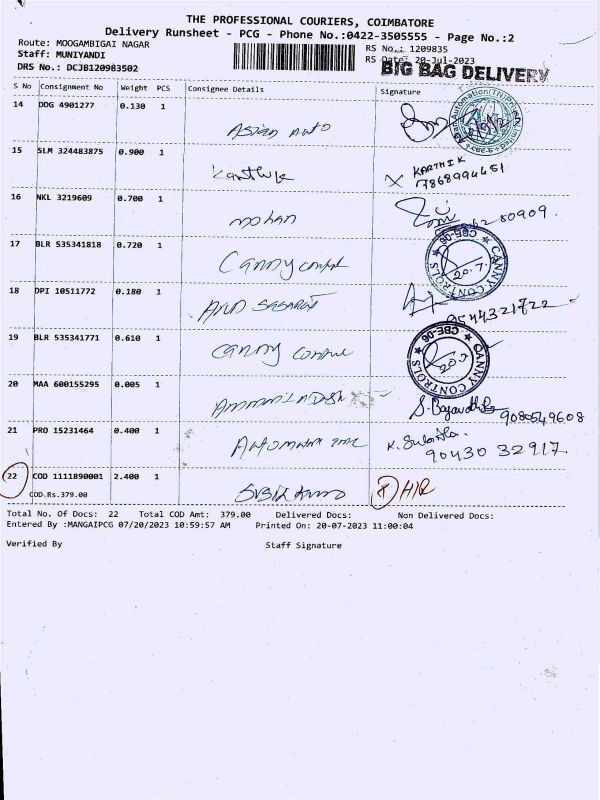 THE PROFESSIONAL COURIERS, COIMBATORE
Delivery Runsheet - PCG - Phone No.:0422-3505555 - Page No.:2
Route: MOOGAMBIGAI NAGAR
RS No.: 1209835
Staff: MUNIYANDI
RS Date: 20-Jul-2023
DRS No.: DCJB120983502
BIG BAG DELIVERY
S No Consignment No Weight PCS Consignee Details Signature
14 DDG 4901277 0.130 1
Asian Auto
15 SLM 324483875 0.900 1
KARTHIK
7868994451
16 NKL 3219609 0.700 1
mohan
80909.
17 BLR 535341818 0.720 1
Canny
CANNY CONTROLS ★ CBE-06 ★
20.7
18 DPI 10511772 0.180 1
9544321722
19 BLR 535341771 0.610 1
Canny
CANNY CONTROLS ★ CBE-06 ★
20.7
20 MAA 600155295 0.005 1
9080549608
21 PRO 15231464 0.400 1
90430 32917.
22 COD 1111890001 2.400 1
COD.Rs.379.00
Total No. Of Docs: 22 Total COD Amt: 379.00 Delivered Docs: Non Delivered Docs:
Entered By :MANGAIPCG 07/20/2023 10:59:57 AM Printed On: 20-07-2023 11:00:04
Verified By Staff Signature